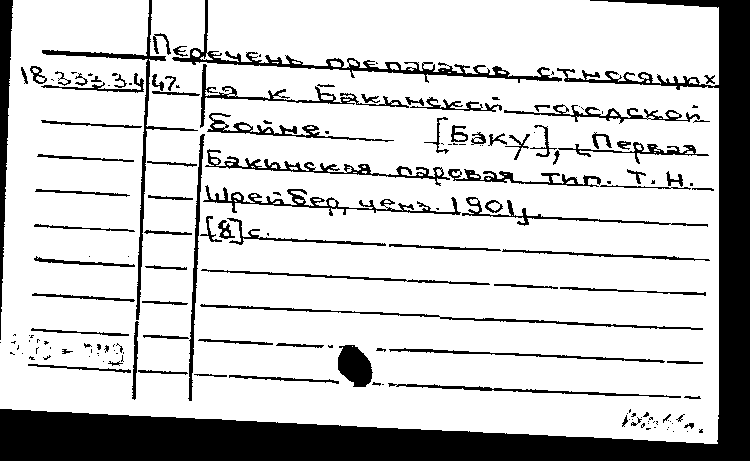 Перечень препаратов, относящих
18.333.3.4 47. ся к Бакинской городской
бойне. [Баку], [Первая
Бакинская паровая тип. Т. Н.
Шрейбер, ценз. 1901].
[8] с.